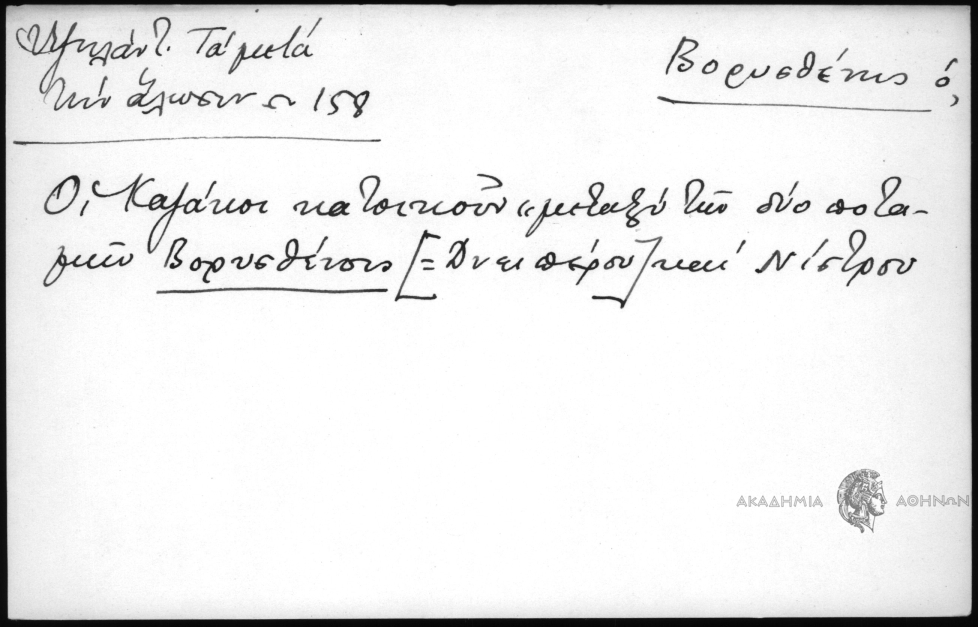 Υψηλάντ. Τά μετά
τήν ἅλωσιν σ 158
Βορυσθένης ὁ,
Οἱ Καζάκοι κατοικοῦν «μεταξύ τῶν δύο ποτα-
μῶν Βορυσθένους [= Δνειπέρου] καί Νίστρου
ΑΚΑΔΗΜΙΑ ΑΘΗΝΩΝ